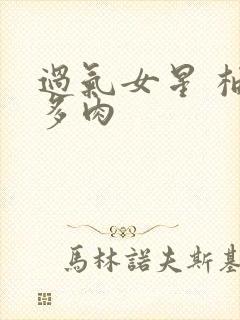 過氣女星
多肉
馬林諾夫斯基